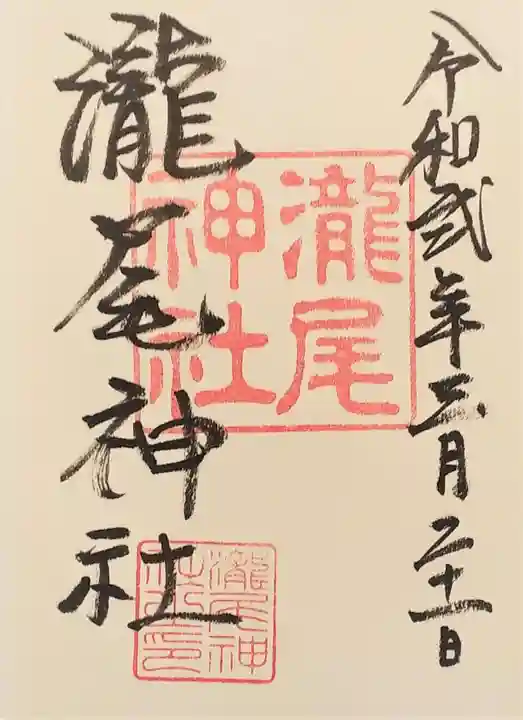 令和弐年三月二十一日
瀧尾神社
瀧尾
神社
瀧尾神
社之印